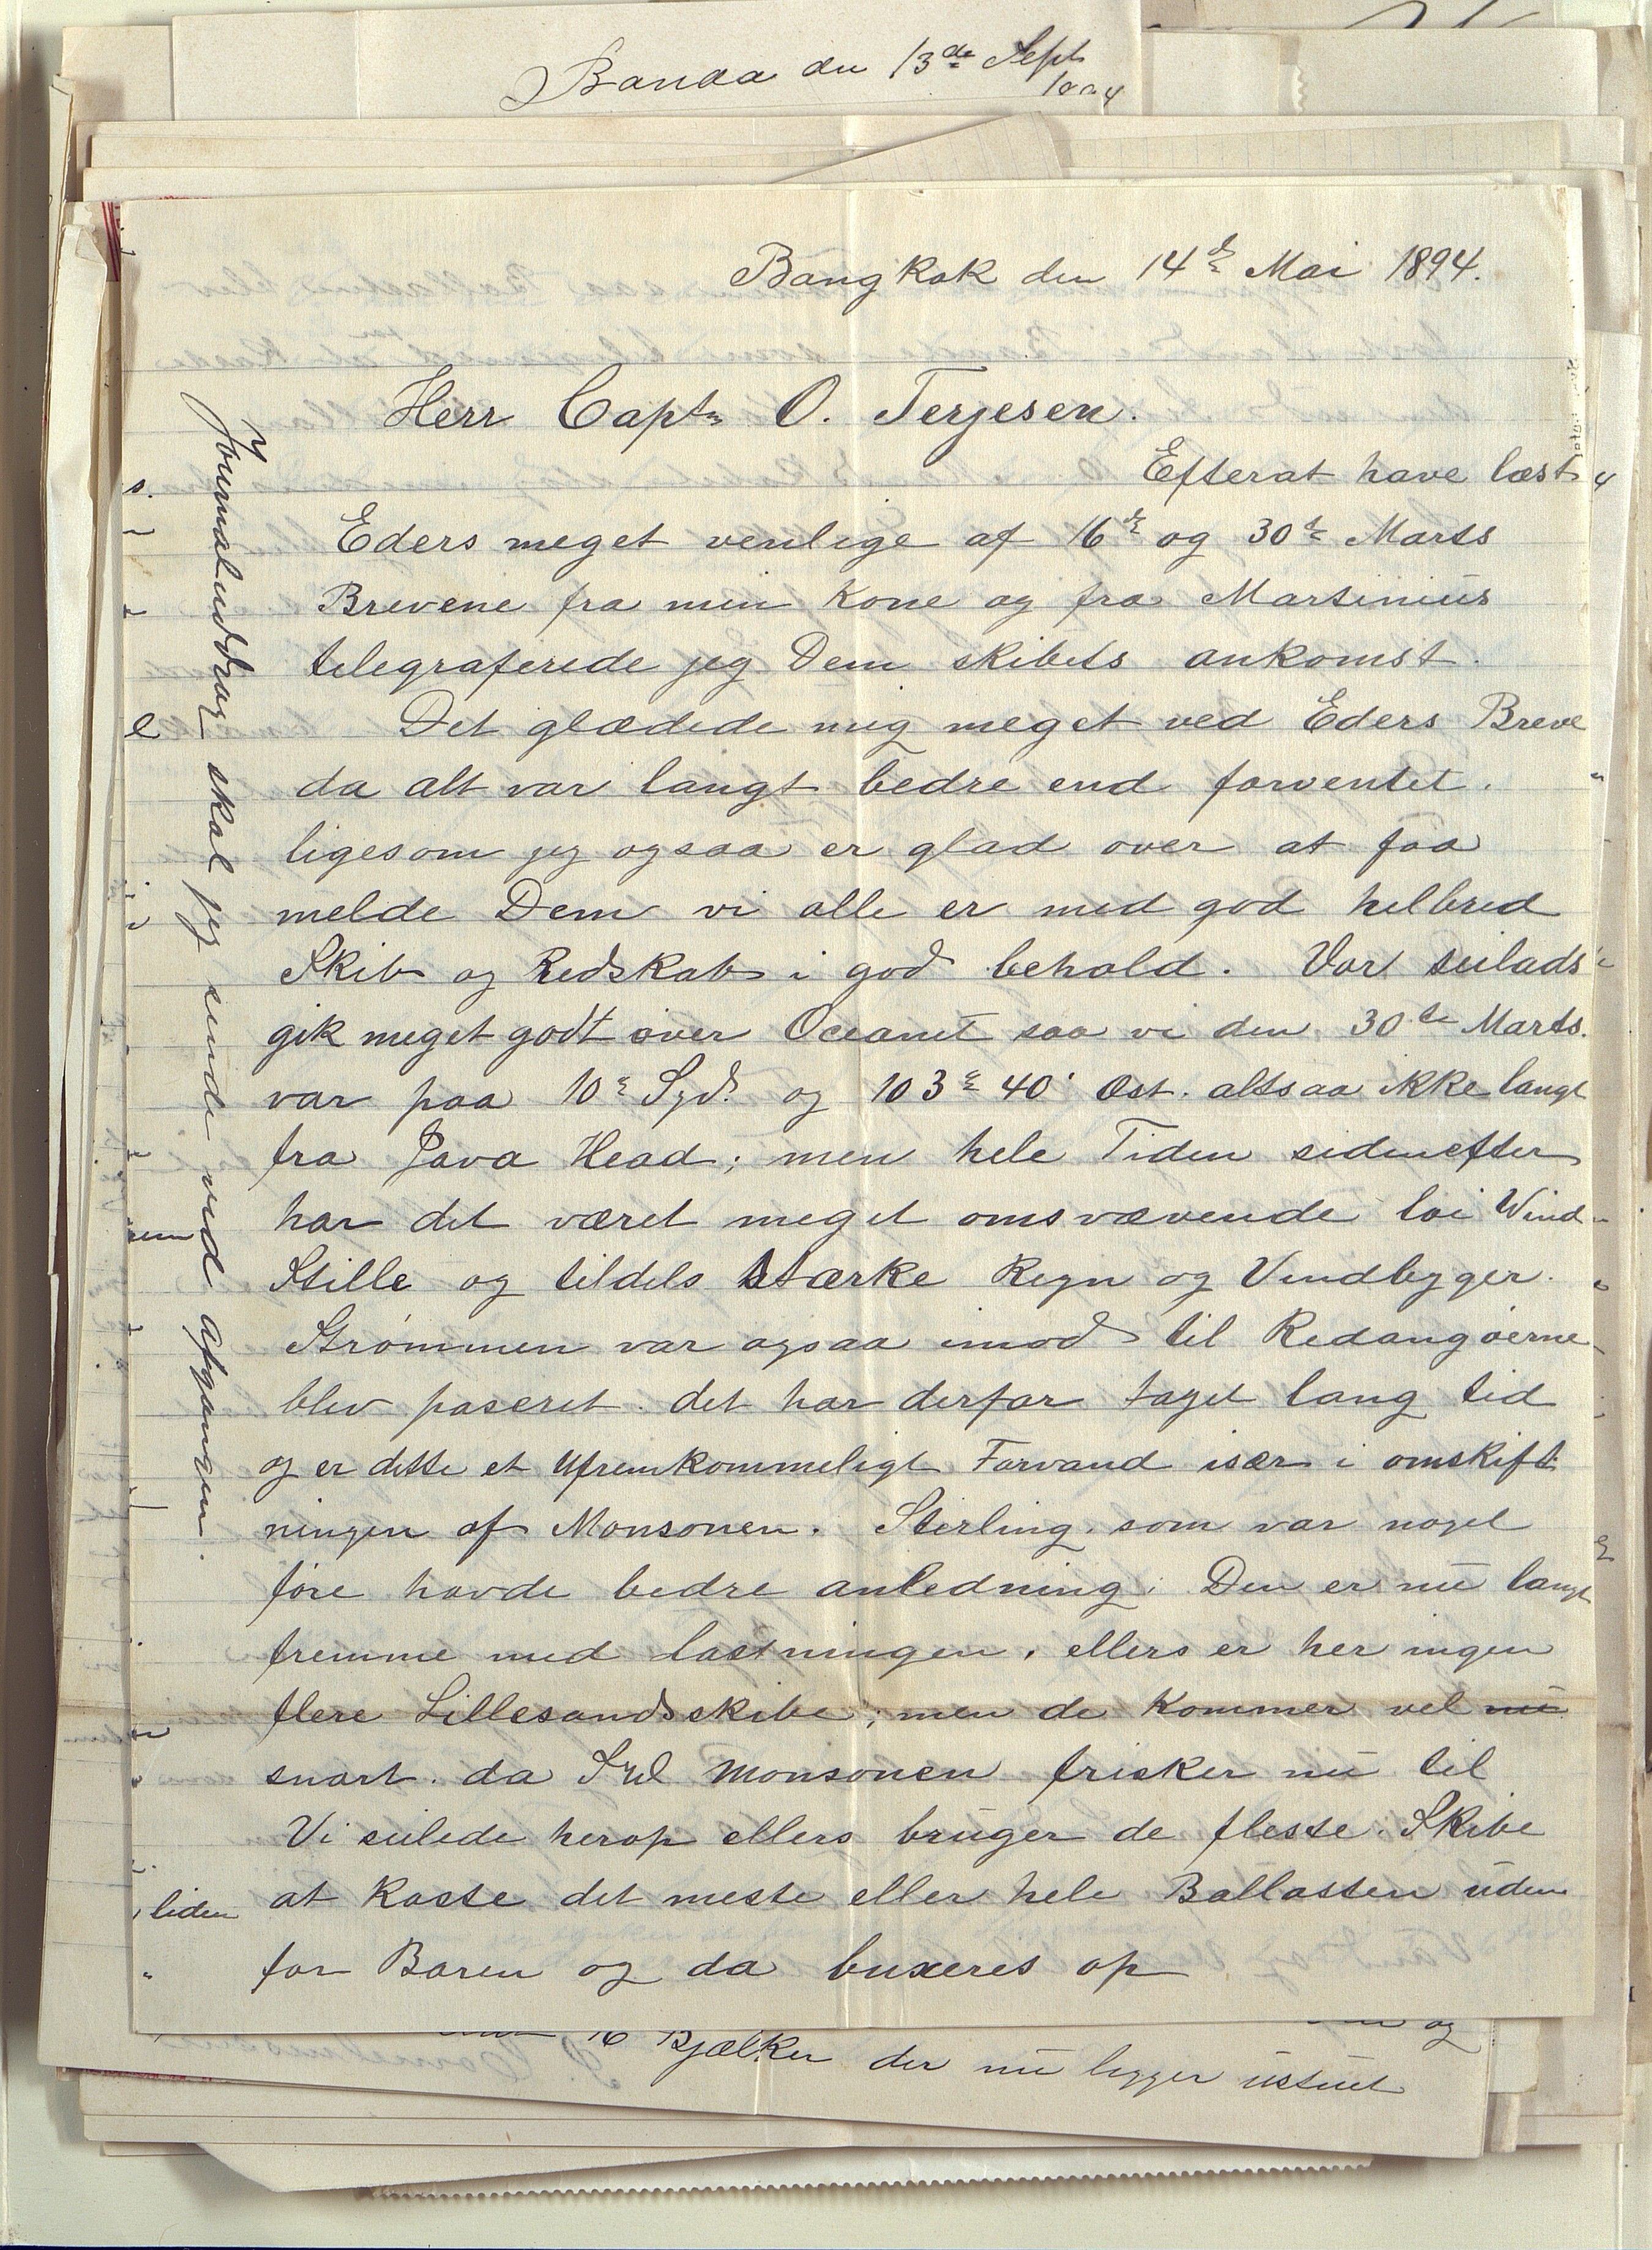 Banda den 13de Sept
Bangkok den 14de Mai 1894.
Herr Captn O. Terjesen.
Efterat have læst
Eders meget venlige af 16de og 30te Marts
Brevene fra min Kone og fra Martinius
telegraferede jeg Dem skibets ankomst.
Det glædede mig meget ved Eders Breve
da alt var langt bedre end forventet.
ligesom jeg ogsaa er glad over at faa
melde Dem vi alle er med god helbred
Skib og Redskab i god behold. Vor seilads
gik meget godt over Oceanet saa vi den 30te Marts.
var paa 10° Syd. og 103° 40' Øst. altsaa ikke langt
fra Java Head; men hele Tiden sidenefter
har det været meget omsvævende löi Wind
Stille og tildels stærke Regn og Vindbyger.
Strømmen var ogsaa imod til Redangöerne
blev paseret. det har derfor taget lang tid
og er dette et Ufremkommeligt Farvand især i omskift
ningen af Monsonen. Sterling. som var noget
före havde bedre anledning. Den er nu langt
fremme med lastningen. ellers er her ingen
flere Lillesandsskibe; men de Kommer vel nu
snart. da Syd Monsonen frisker nu til
Vi seilede herop ellers bruger de fleste Skibe
at Kaste det meste eller hele Ballasten uden
for Baren og da buxeres op
Journaludtrag skal jeg sende ved afgangen.
liden
16 Bjælker der nu ligger ustuet
og